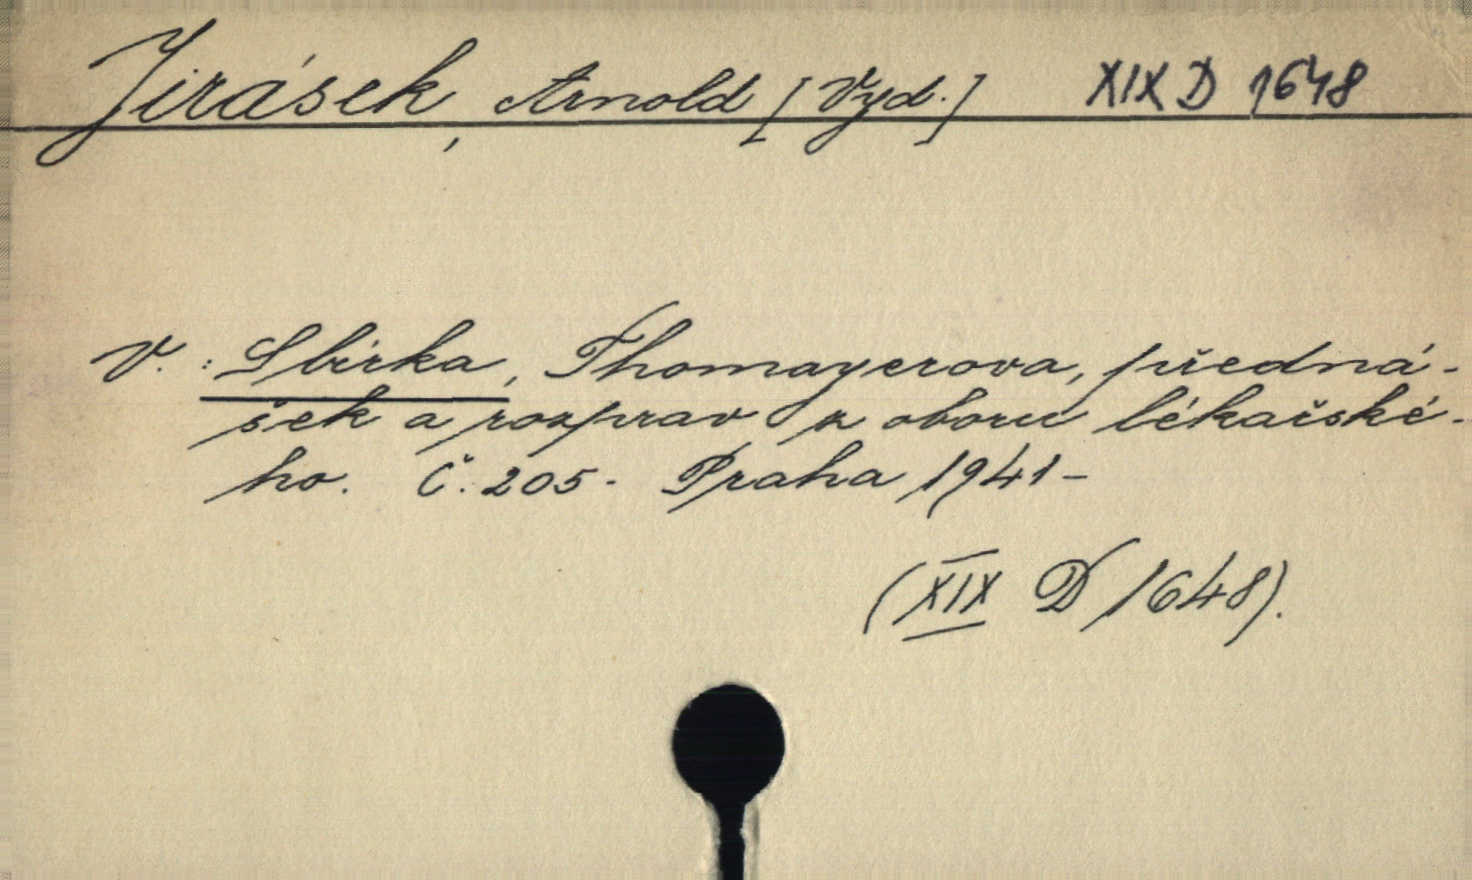 Jirásek, Arnold [Vyd.] XIX D 1648
V.: Sbírka, Thomayerova, předná-
šek a rozprav z oboru lékařské-
ho. Č. 205- Praha 1941-
(XIX D 1648).